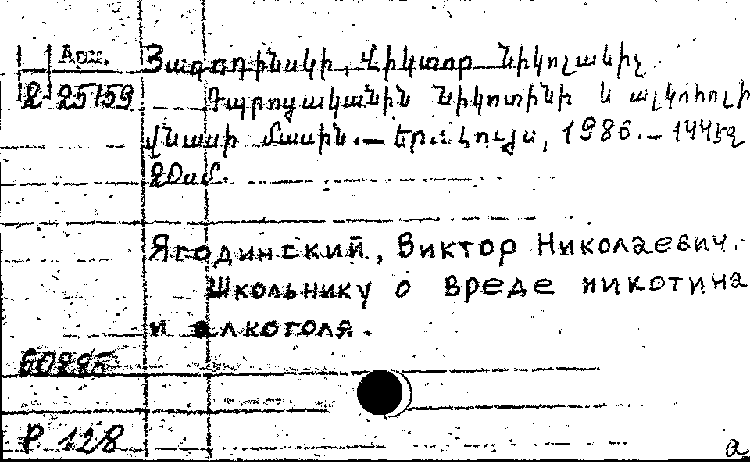 Арм. Յագոդինսկի, Վիկտոր Նիկոլաևիչ
2-25159 Դպրոցականին նիկոտինի և ալկոհոլի
վնասի մասին.— Եր.: Լույս, 1986.— 144 էջ
20սմ.
Ягодинский, Виктор Николаевич.
Школьнику о вреде никотина
и алкоголя.
60225
Р 128
а